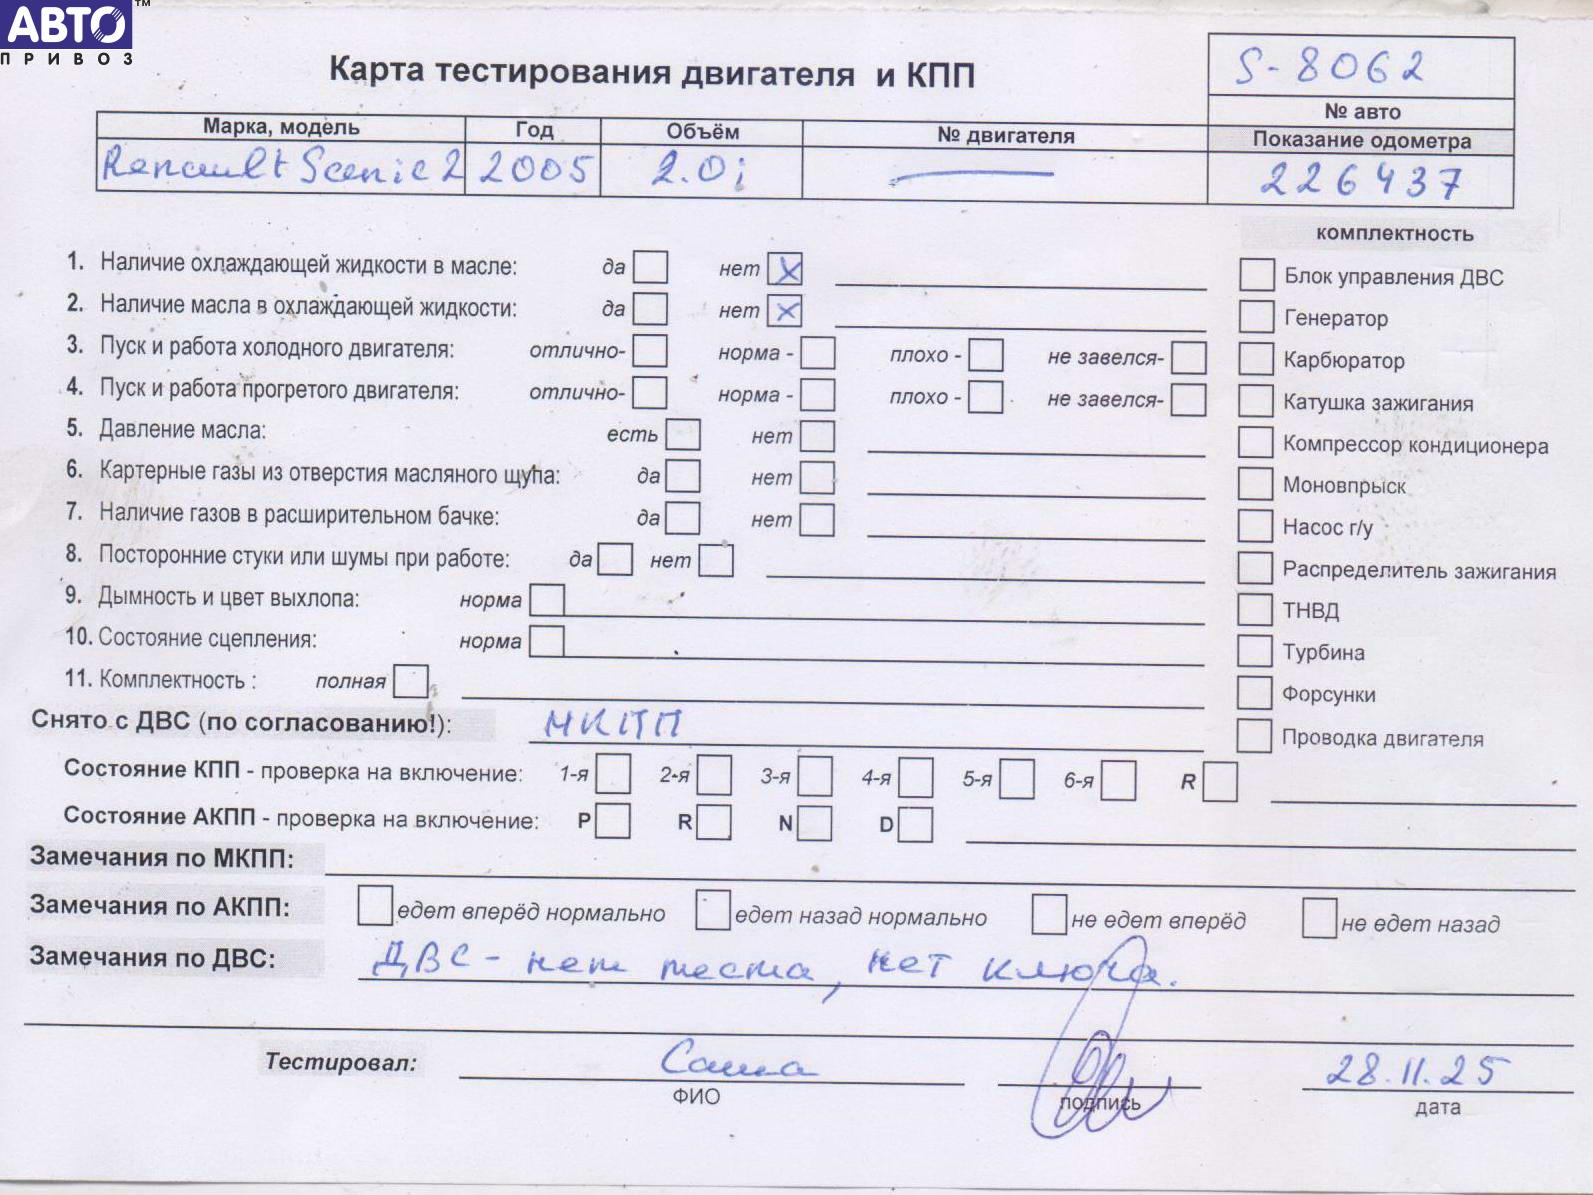 АВТО™
ПРИВОЗ
Карта тестирования двигателя и КПП
S-8062
№ авто
Марка, модель Год Объём № двигателя Показание одометра
Renault Scenic 2 2005 2.0i — 226437
комплектность
1. Наличие охлаждающей жидкости в масле: да нет X
Блок управления ДВС
2. Наличие масла в охлаждающей жидкости: да нет X
Генератор
3. Пуск и работа холодного двигателя: отлично- норма - плохо - не завелся-
Карбюратор
4. Пуск и работа прогретого двигателя: отлично- норма - плохо - не завелся-
Катушка зажигания
5. Давление масла: есть нет
Компрессор кондиционера
6. Картерные газы из отверстия масляного щупа: да нет
Моновпрыск
7. Наличие газов в расширительном бачке: да нет
Насос г/у
8. Посторонние стуки или шумы при работе: да нет
Распределитель зажигания
9. Дымность и цвет выхлопа: норма
ТНВД
10. Состояние сцепления: норма
Турбина
11. Комплектность : полная
Форсунки
Снято с ДВС (по согласованию!): МКПП
Проводка двигателя
Состояние КПП - проверка на включение: 1-я 2-я 3-я 4-я 5-я 6-я R
Состояние АКПП - проверка на включение: P R N D
Замечания по МКПП:
Замечания по АКПП: едет вперёд нормально едет назад нормально не едет вперёд не едет назад
Замечания по ДВС: ДВС - нет теста, нет ключа.
Тестировал: Саша 28.11.25
ФИО подпись дата